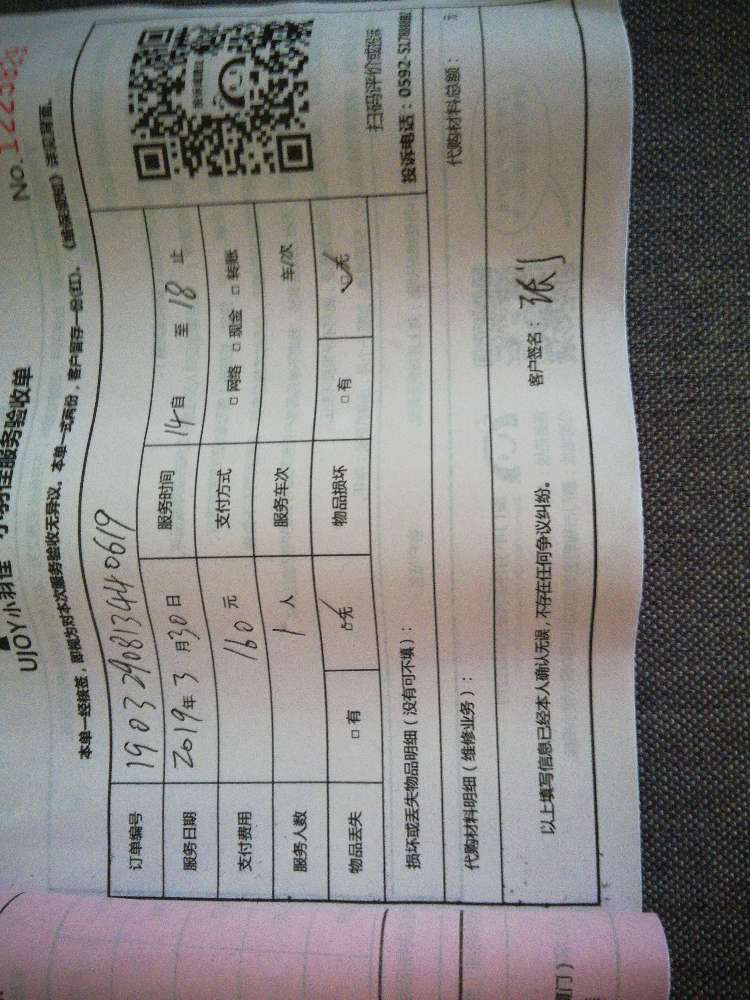 UJOY小羽佳 小羽佳服务验收单
No.
本单一经接签，即视为对本次服务验收无异议。本单一式两份，客户留存一份(红)。
订单编号 190329081344 0619
服务日期 2019年3月30日 服务时间 14自 至 18 止
支付费用 160 元 支付方式 □ 网络 □ 现金 □ 转账
服务人数 1 人 服务车次 车/次
物品丢失 □ 有 □ 无 物品损坏 □ 有 □ 无
扫码评价或投诉
投诉电话：0592-
损坏或丢失物品明细（没有可不填）：
代购材料明细（维修业务）： 代购材料总额： 元
以上填写信息已经本人确认无误，不存在任何争议纠纷。 客户签名：
门）